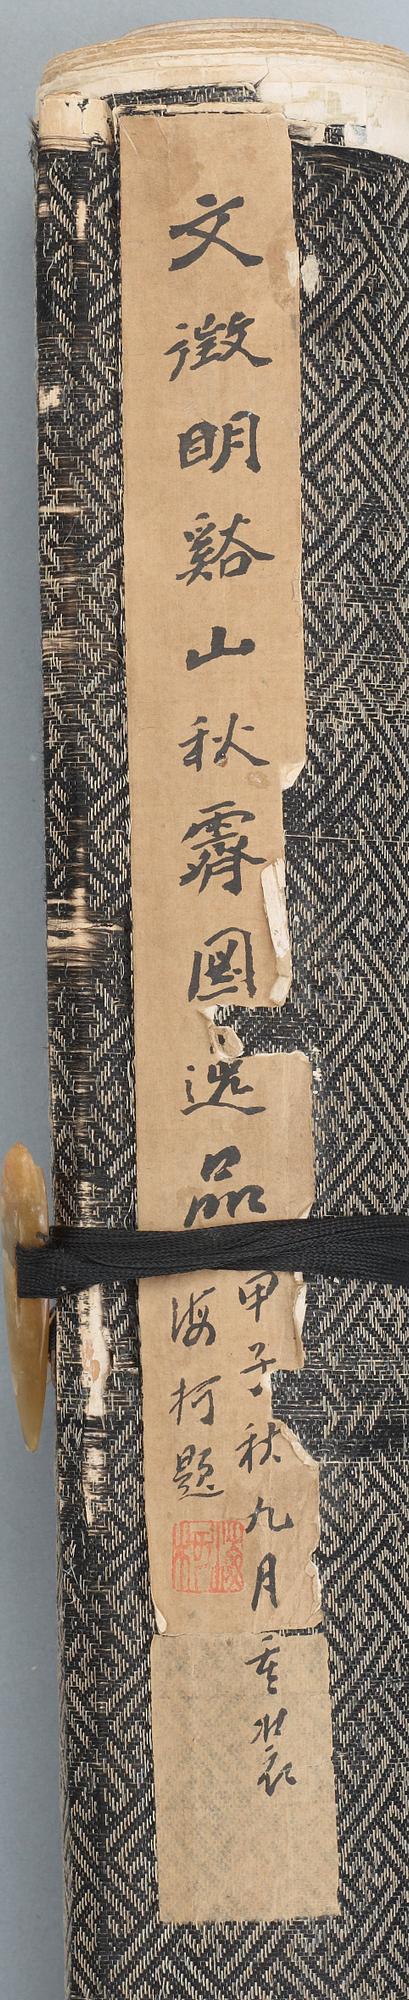 文徵明谿山秋霽圖逸品
甲子秋九月重裝
海柯題